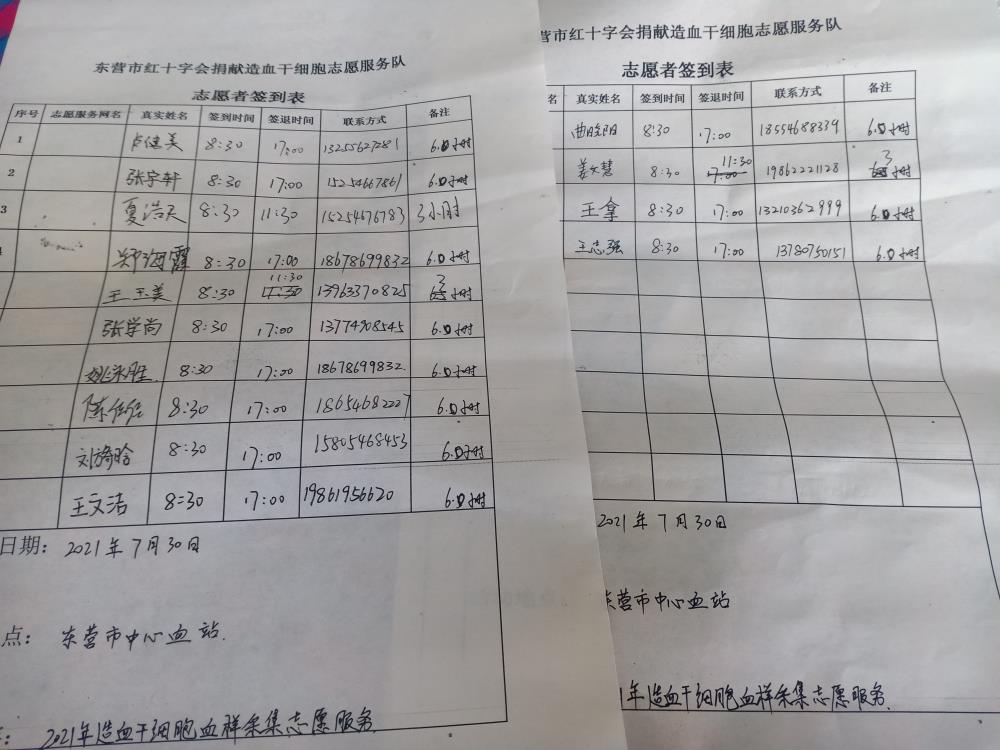 东营市红十字会捐献造血干细胞志愿服务队
志愿者签到表
序号 志愿服务网名 真实姓名 签到时间 签退时间 联系方式 备注
1 卢健美 8:30 17:00 13255627281 6.0小时
2 张宇轩 8:30 17:00 15254667861 6.0小时
3 夏浩天 8:30 11:30 15254676783 3小时
郑海霞 8:30 17:00 18678699832 6.0小时
王玉美 8:30 11:30 13963370825 3小时
张学尚 8:30 17:00 13774908545 6.0小时
8:30 17:00 18678699832 6.0小时
8:30 17:00 18654682227 6.0小时
8:30 17:00 15805468453 6.0小时
王文洁 8:30 17:00 19861956620 6.0小时
日期: 2021年7月30日
点: 东营市中心血站.
2021年造血干细胞血样采集志愿服务.
营市红十字会捐献造血干细胞志愿服务队
志愿者签到表
名 真实姓名 签到时间 签退时间 联系方式 备注
曲晓阳 8:30 17:00 18554688339 6.0小时
姜文慧 8:30 11:30 19862221128 3小时
王拿 8:30 17:00 13210362999 6.0小时
王志强 8:30 17:00 13780750151 6.0小时
2021年7月30日
东营市中心血站
1年造血干细胞血样采集志愿服务.